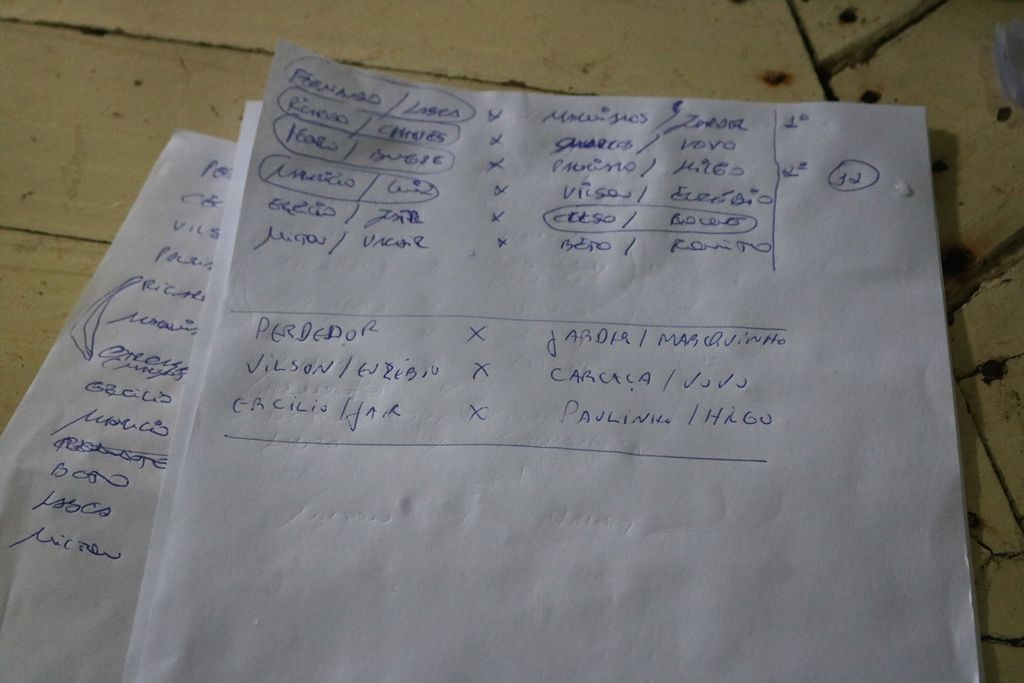 FERNANDO / LASCA x MARQUINHOS / JARDER 1º
RICARDO / CHAVES x / VOVO
PEDRO / x PAULINHO / HILGO 2º 12
MAURICIO / LUIZ x VILSON / EUZÉBIO
ERCILIO / JAIR x CELSO /
MILTON / VALCIR x BETO / ROMILTO
PERDEDOR X JARDER / MARQUINHO
VILSON / EUZÉBIO X CARCAÇA / VOVO
ERCILIO / JAIR X PAULINHO / HILGO
PE
CE
VILS
PAULIN
RICAR
MARQUI
ERCILIO
MAURCIO
BETO
LASCA
MILTON